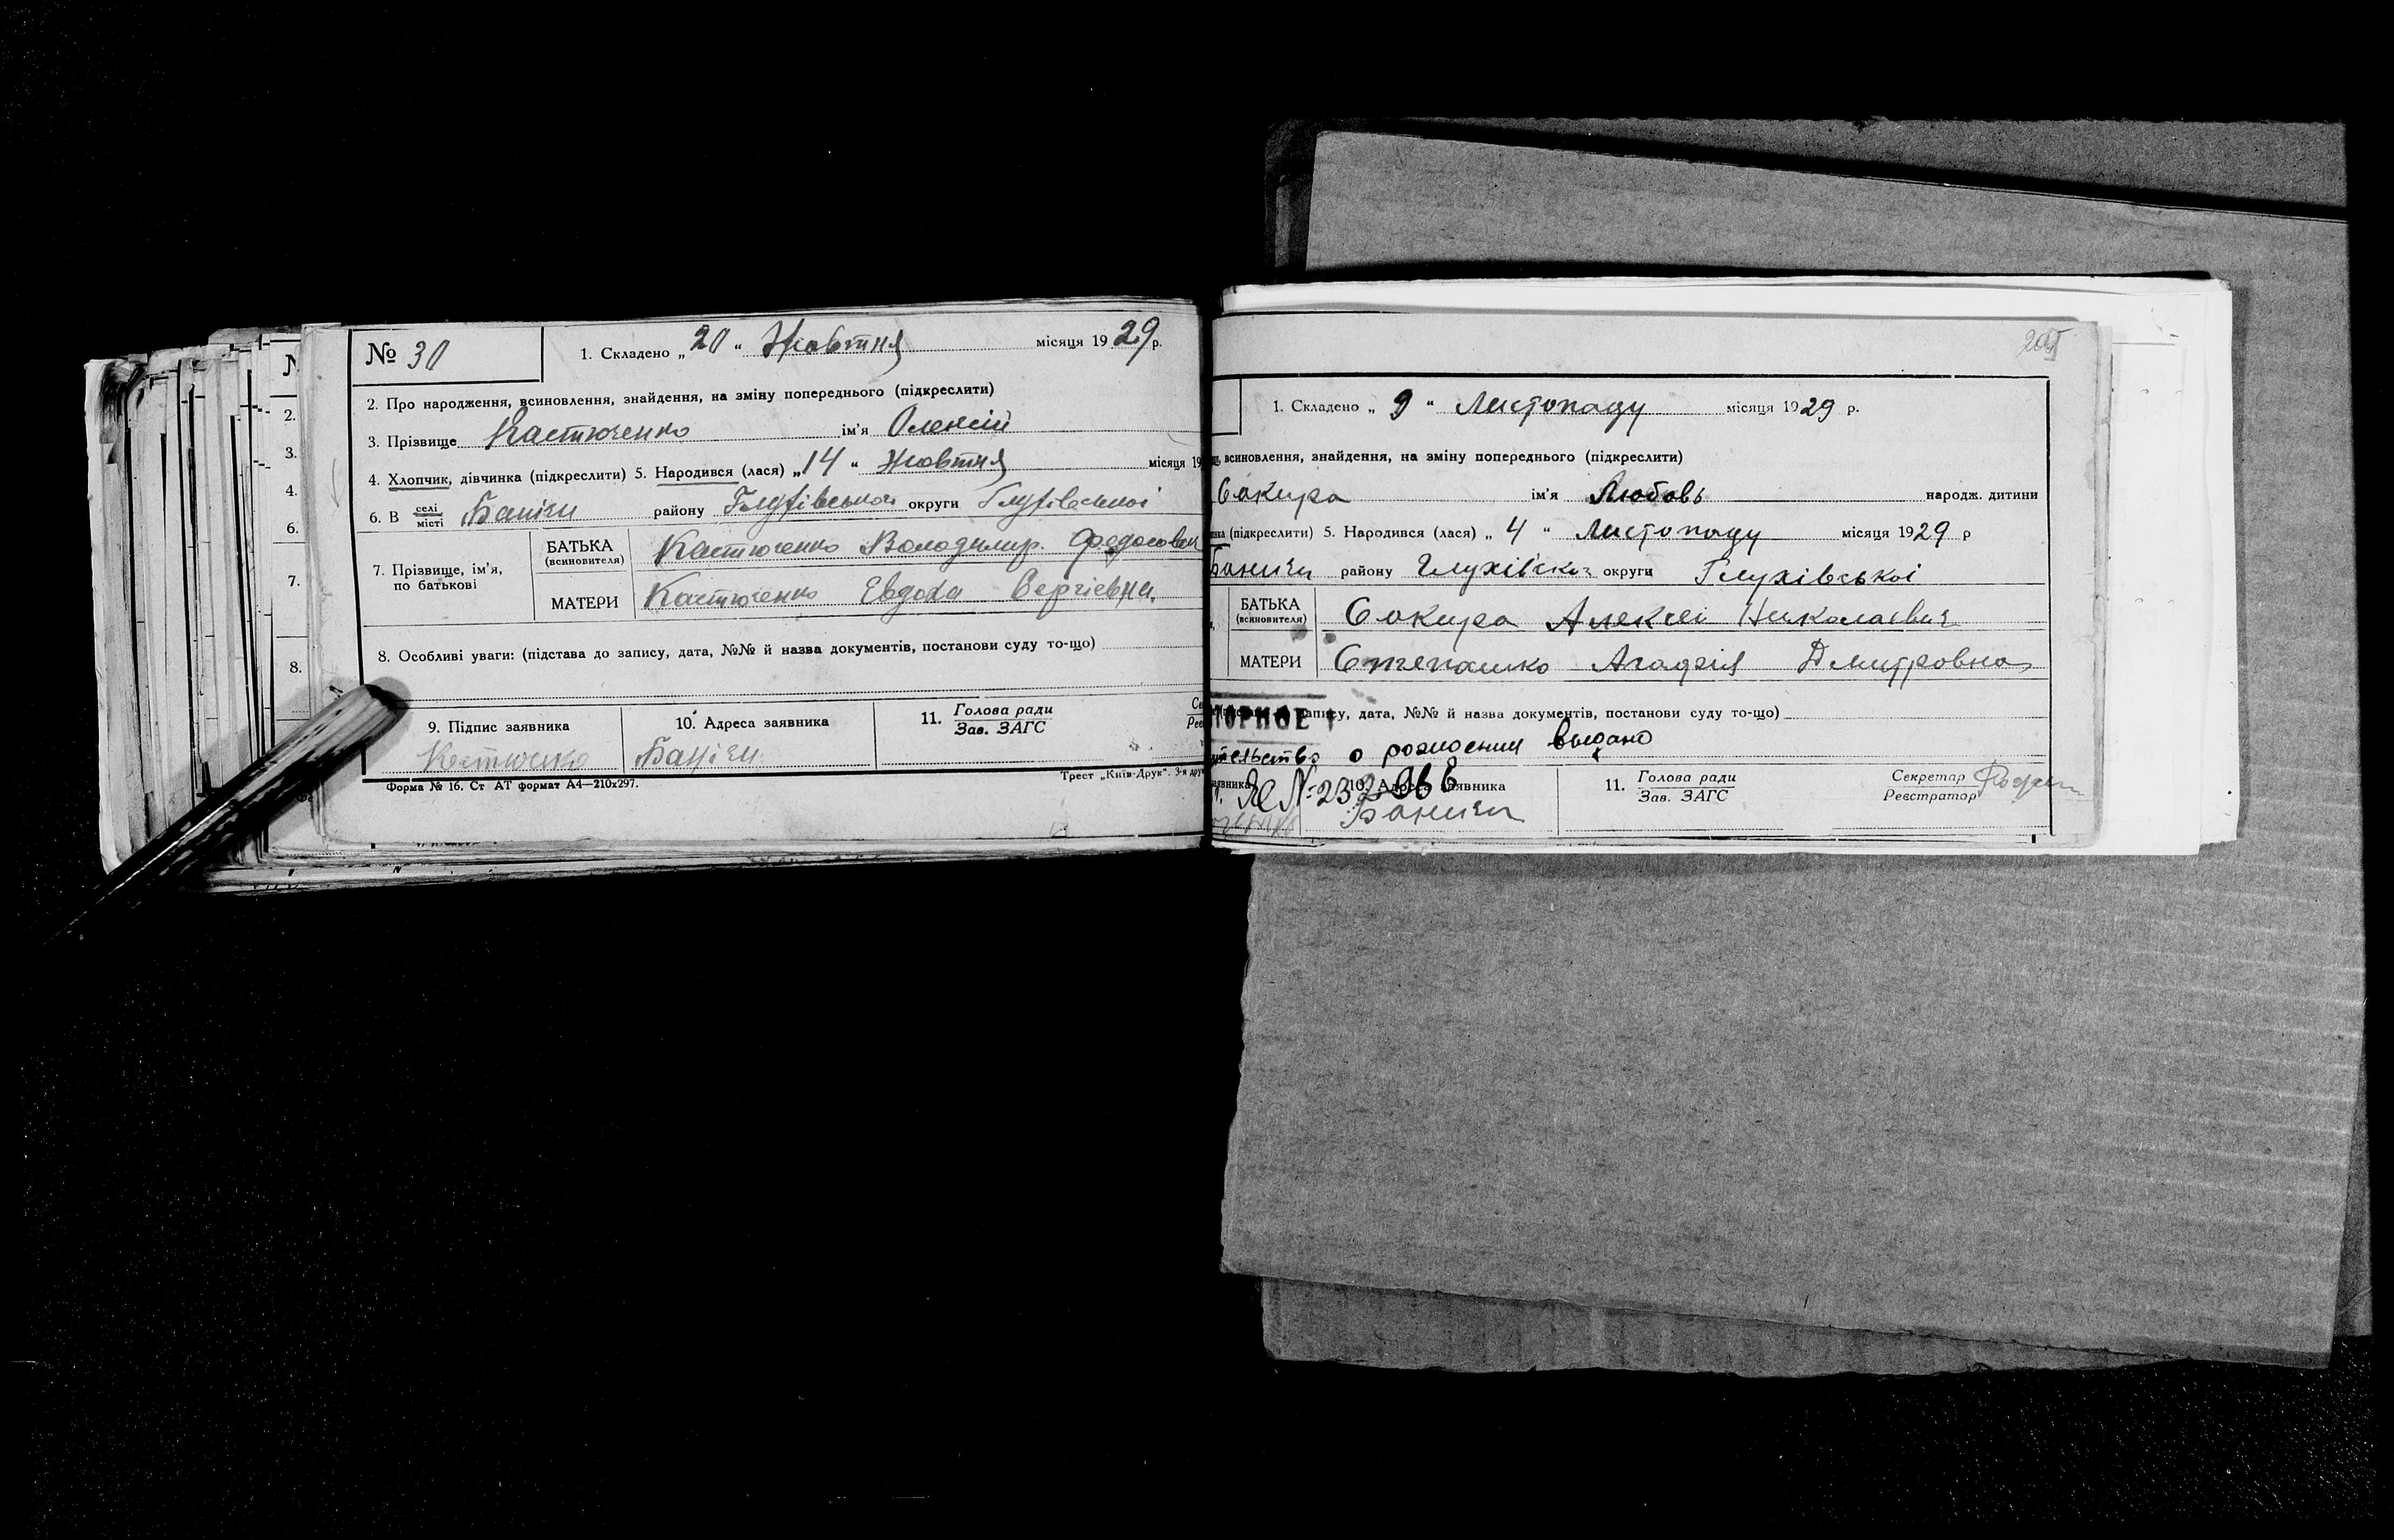 № 30
1. Складено „20“ Жовтня місяця 1929 р.
2. Про народження, всиновлення, знайдення, на зміну попереднього (підкреслити)
3. Прізвище Кастюченко ім'я Олексій
4. Хлопчик, дівчинка (підкреслити) 5. Народився (лася) „14“ Жовтня місяця 19
6. В селі місті Баничи району Глухівської округи Глухівської
7. Прізвище, ім'я, по батькові
БАТЬКА (всиновителя) Кастюченко Володимир Федосович
МАТЕРИ Кастюченко Евдоха Сергіевна
8. Особливі уваги: (підстава до запису, дата, №№ й назва документів, постанови суду то-що)
9. Підпис заявника 10. Адреса заявника 11. Голова ради Зав. ЗАГС
Баничи
Форма № 16. Ст АТ формат А4—210х297. Трест „Київ-Друк“. 3-я
2.
3.
4.
6.
7.
8.
1. Складено „9“ Листопаду місяця 1929 р.
всиновлення, знайдення, на зміну попереднього (підкреслити)
Сокира ім'я Любовь народж. дитини
(підкреслити) 5. Народився (лася) „4“ Листопаду місяця 1929 р
Баничи району Глухівської округи Глухівської
БАТЬКА (всиновителя) Сокира Алексеі Николаевич
МАТЕРИ Степашко Агафія Дмитровна
ТОРНОЕ запису, дата, №№ й назва документів, постанови суду то-що)
тельство о рождении выдано
10. Адреса заявника 11. Голова ради Зав. ЗАГС Секретар Реєстратор
Баничи